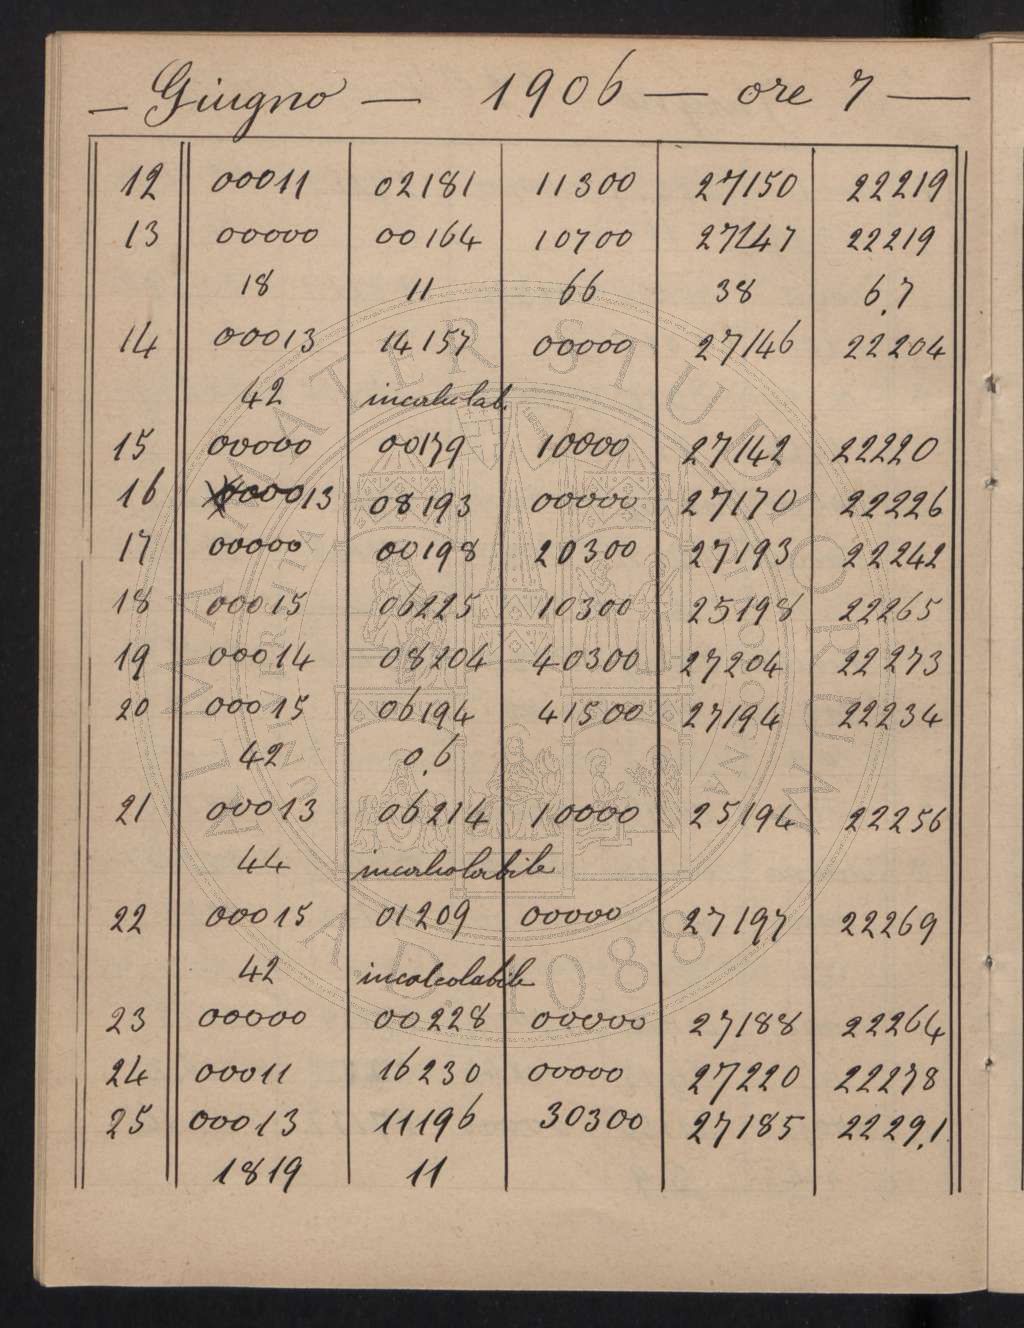 — Giugno — 1906 — ore 7 —
12 00011 02181 11300 27150 22219
13 00000 00164 10700 27147 22219
18 11 66 38 6.7
14 00013 14157 00000 27146 22204
42 incalcolab.
15 00000 00179 10000 27142 22220
16 00013 08193 00000 27170 22226
17 00000 00198 20300 27193 22242
18 00015 06225 10300 25198 22265
19 00014 08204 40300 27204 22273
20 00015 06194 41500 27194 22234
42 0.6
21 00013 06214 10000 25194 22256
44 incalcolabile
22 00015 01209 00000 27197 22269
42 incalcolabile
23 00000 00228 00000 27188 22264
24 00011 16230 00000 27220 22278
25 00013 11196 30300 27185 2229.1
1819 11
ALMA MATER STUDIORUM
A.D. 1088